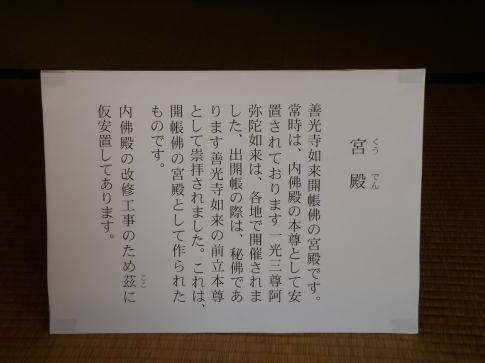 宮殿
くうでん
善光寺如来開帳佛の宮殿です。
常時は、内佛殿の本尊として安
置されております一光三尊阿
弥陀如来は、各地で開催されま
した、出開帳の際は、秘佛であ
ります善光寺如来の前立本尊
として崇拝されました。これは、
開帳佛の宮殿として作られた
ものです。
内佛殿の改修工事のため茲に
ここ
仮安置してあります。